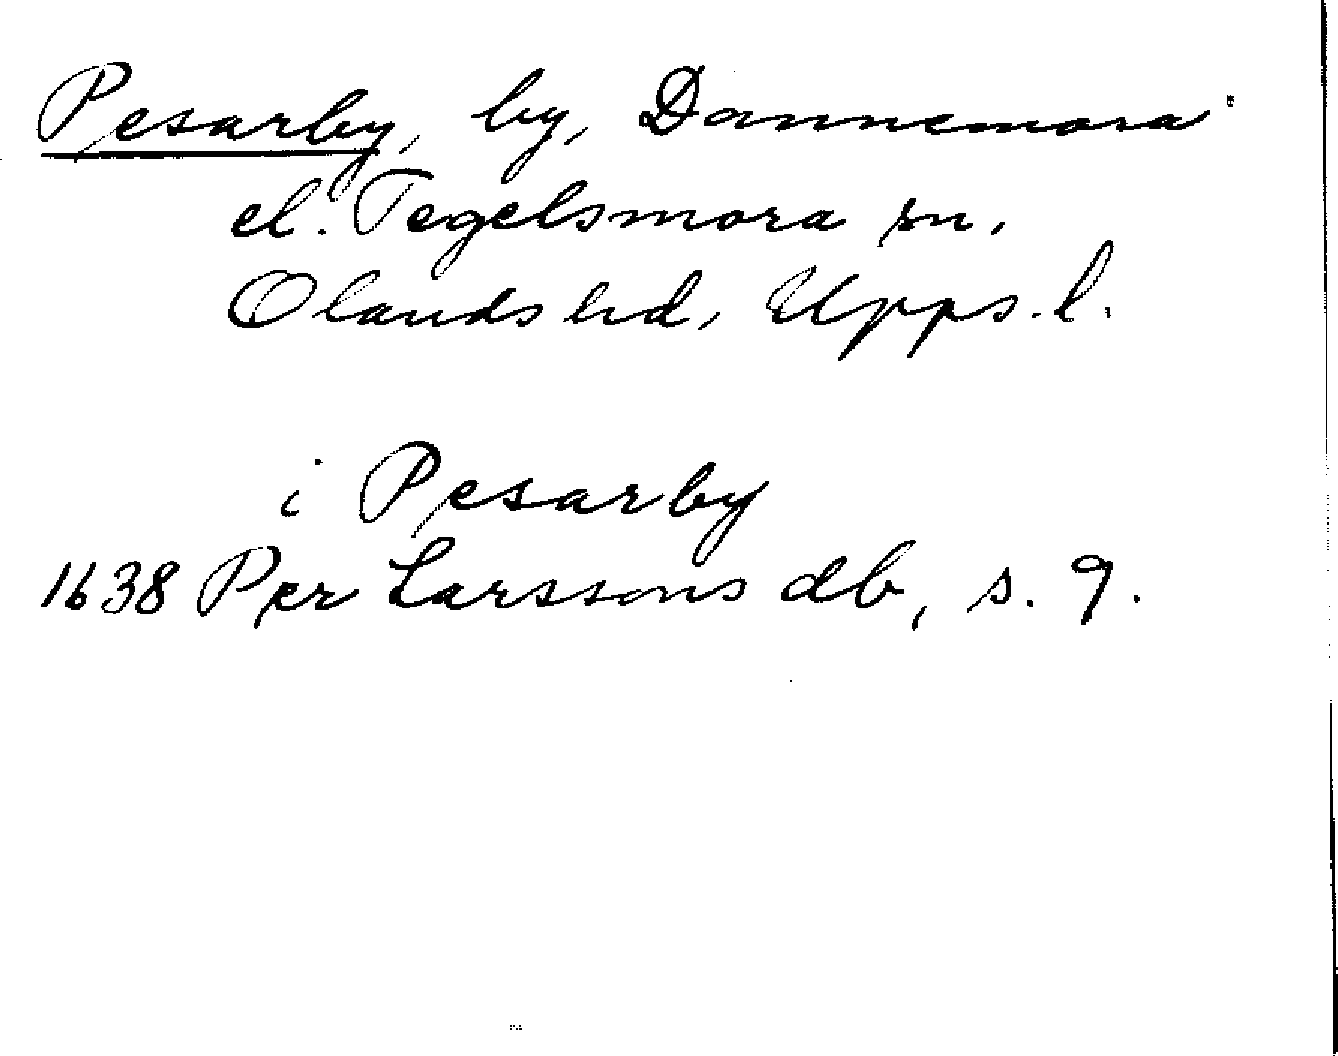 Pesarby, by, Dannemora
el. Tegelsmora sn,
Olands hd, Upps. l.
i Pesarby
1638 Per Larssons db, s. 9.